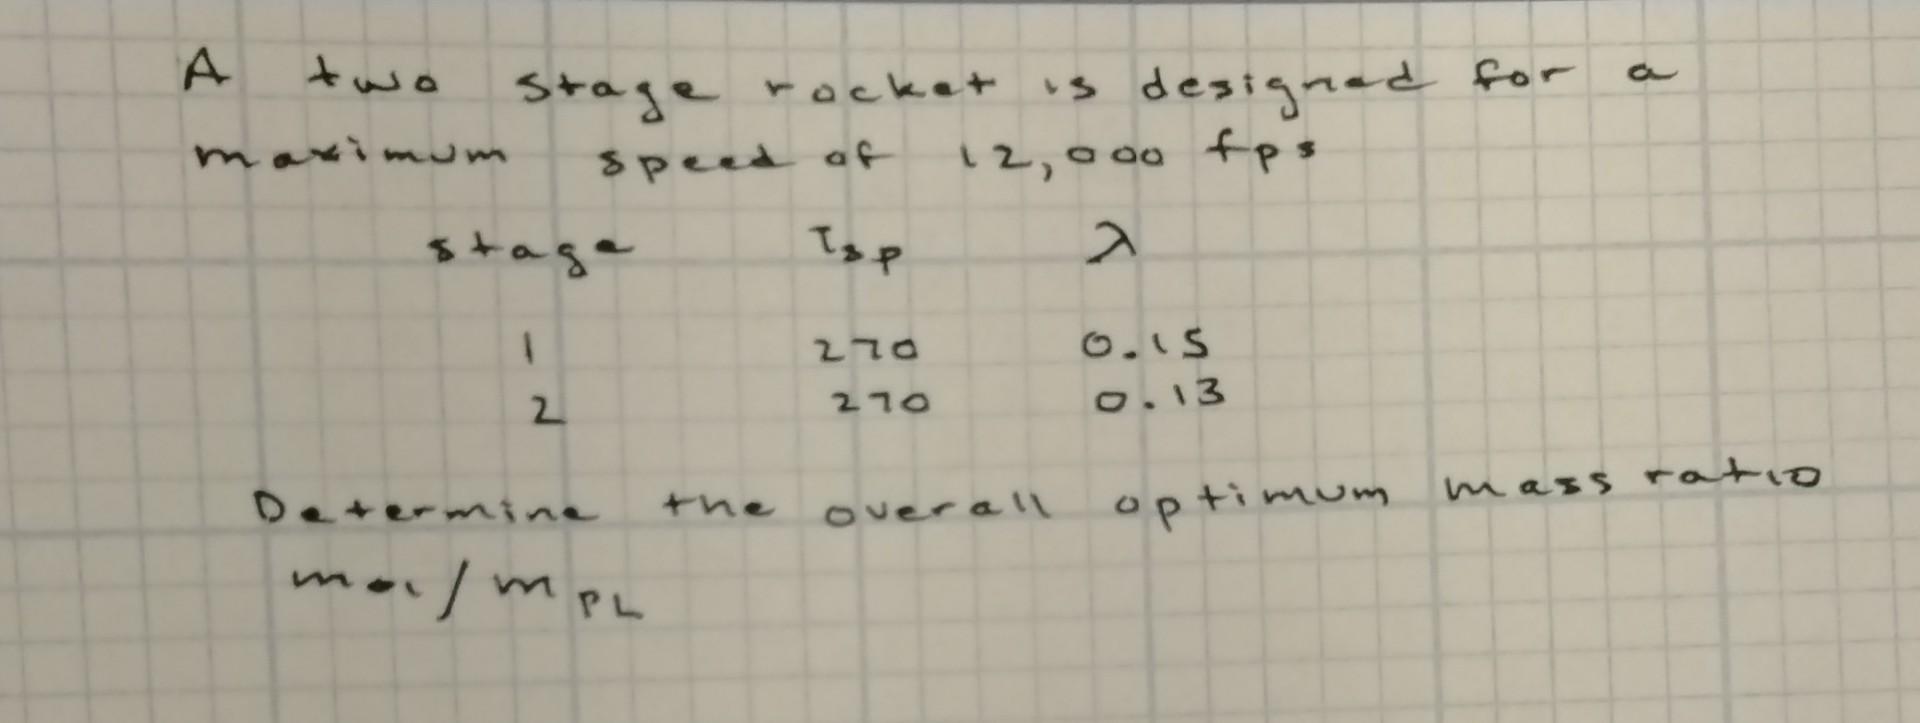 A two stage rocket is designed for a
maximum speed of 12,000 fps
stage Isp λ
1 270 0.15
2 270 0.13
Determine the overall optimum mass ratio
m01/mPL